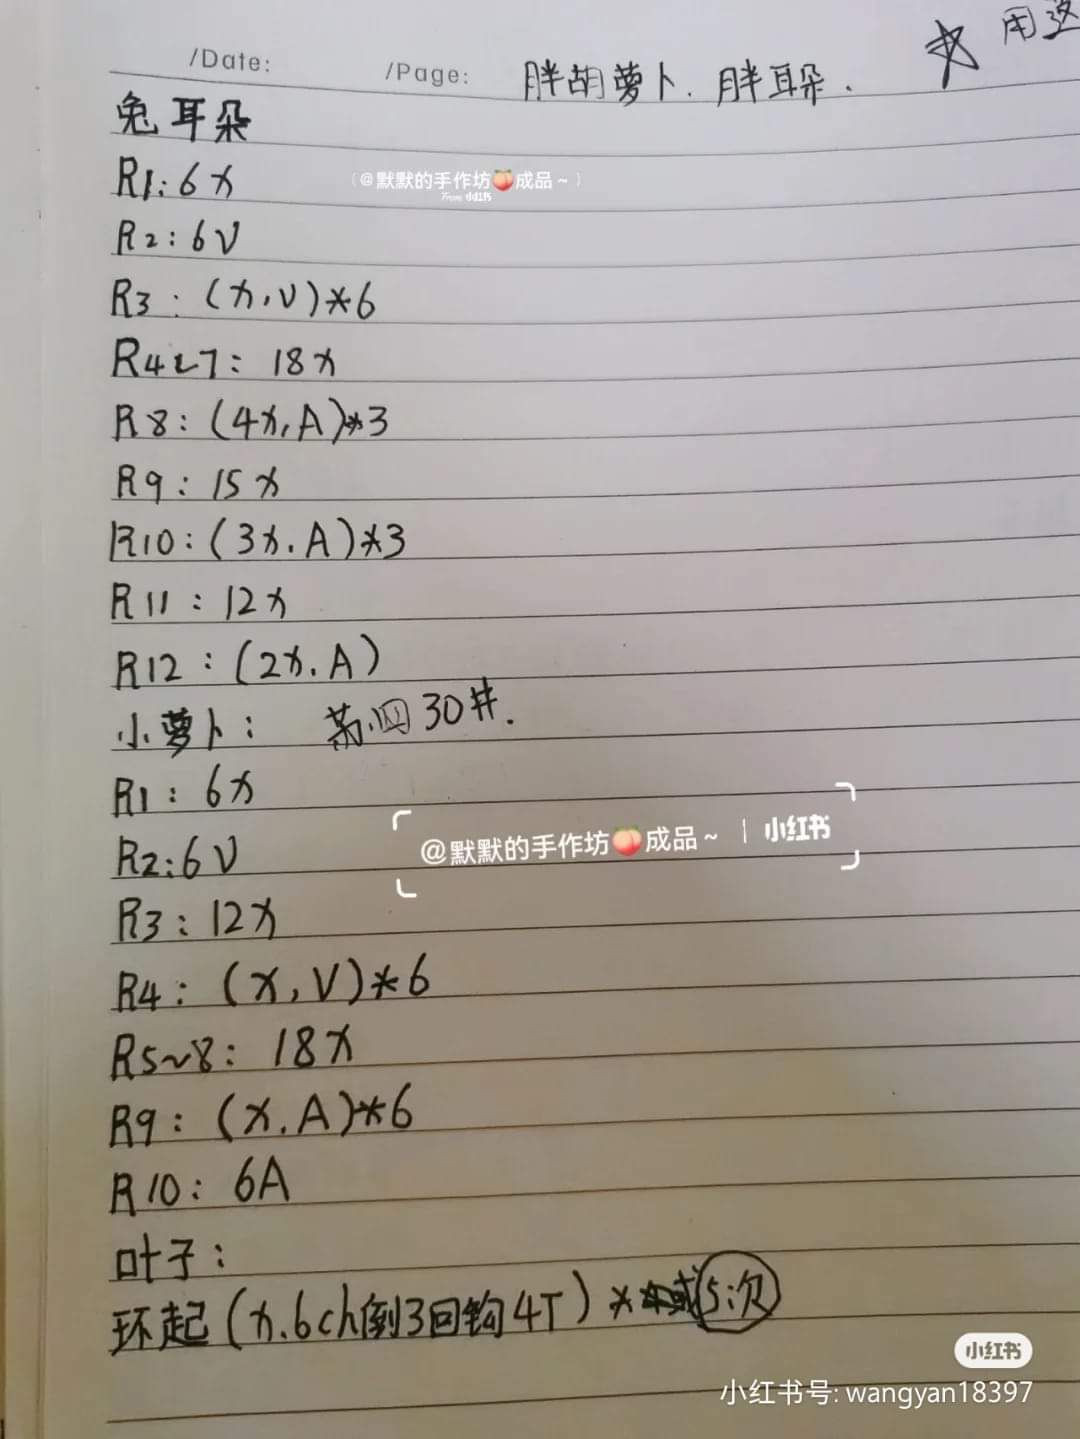 /Date:
/Page:
胖胡萝卜. 胖耳朵.
用这
兔耳朵
R1: 6x
(@默默的手作坊🍑成品~)
R2: 6V
R3: (x,V)*6
R4~7: 18x
R8: (4x,A)*3
R9: 15x
R10: (3x.A)*3
R11: 12x
R12: (2x.A)
小萝卜: 30#.
R1: 6x
R2: 6V
@默默的手作坊🍑成品~ | 小红书
R3: 12x
R4: (x,V)*6
R5~8: 18x
R9: (x.A)*6
R10: 6A
叶子:
环起(x.6ch倒3回钩4T)* 或5次
小红书
小红书号: wangyan18397